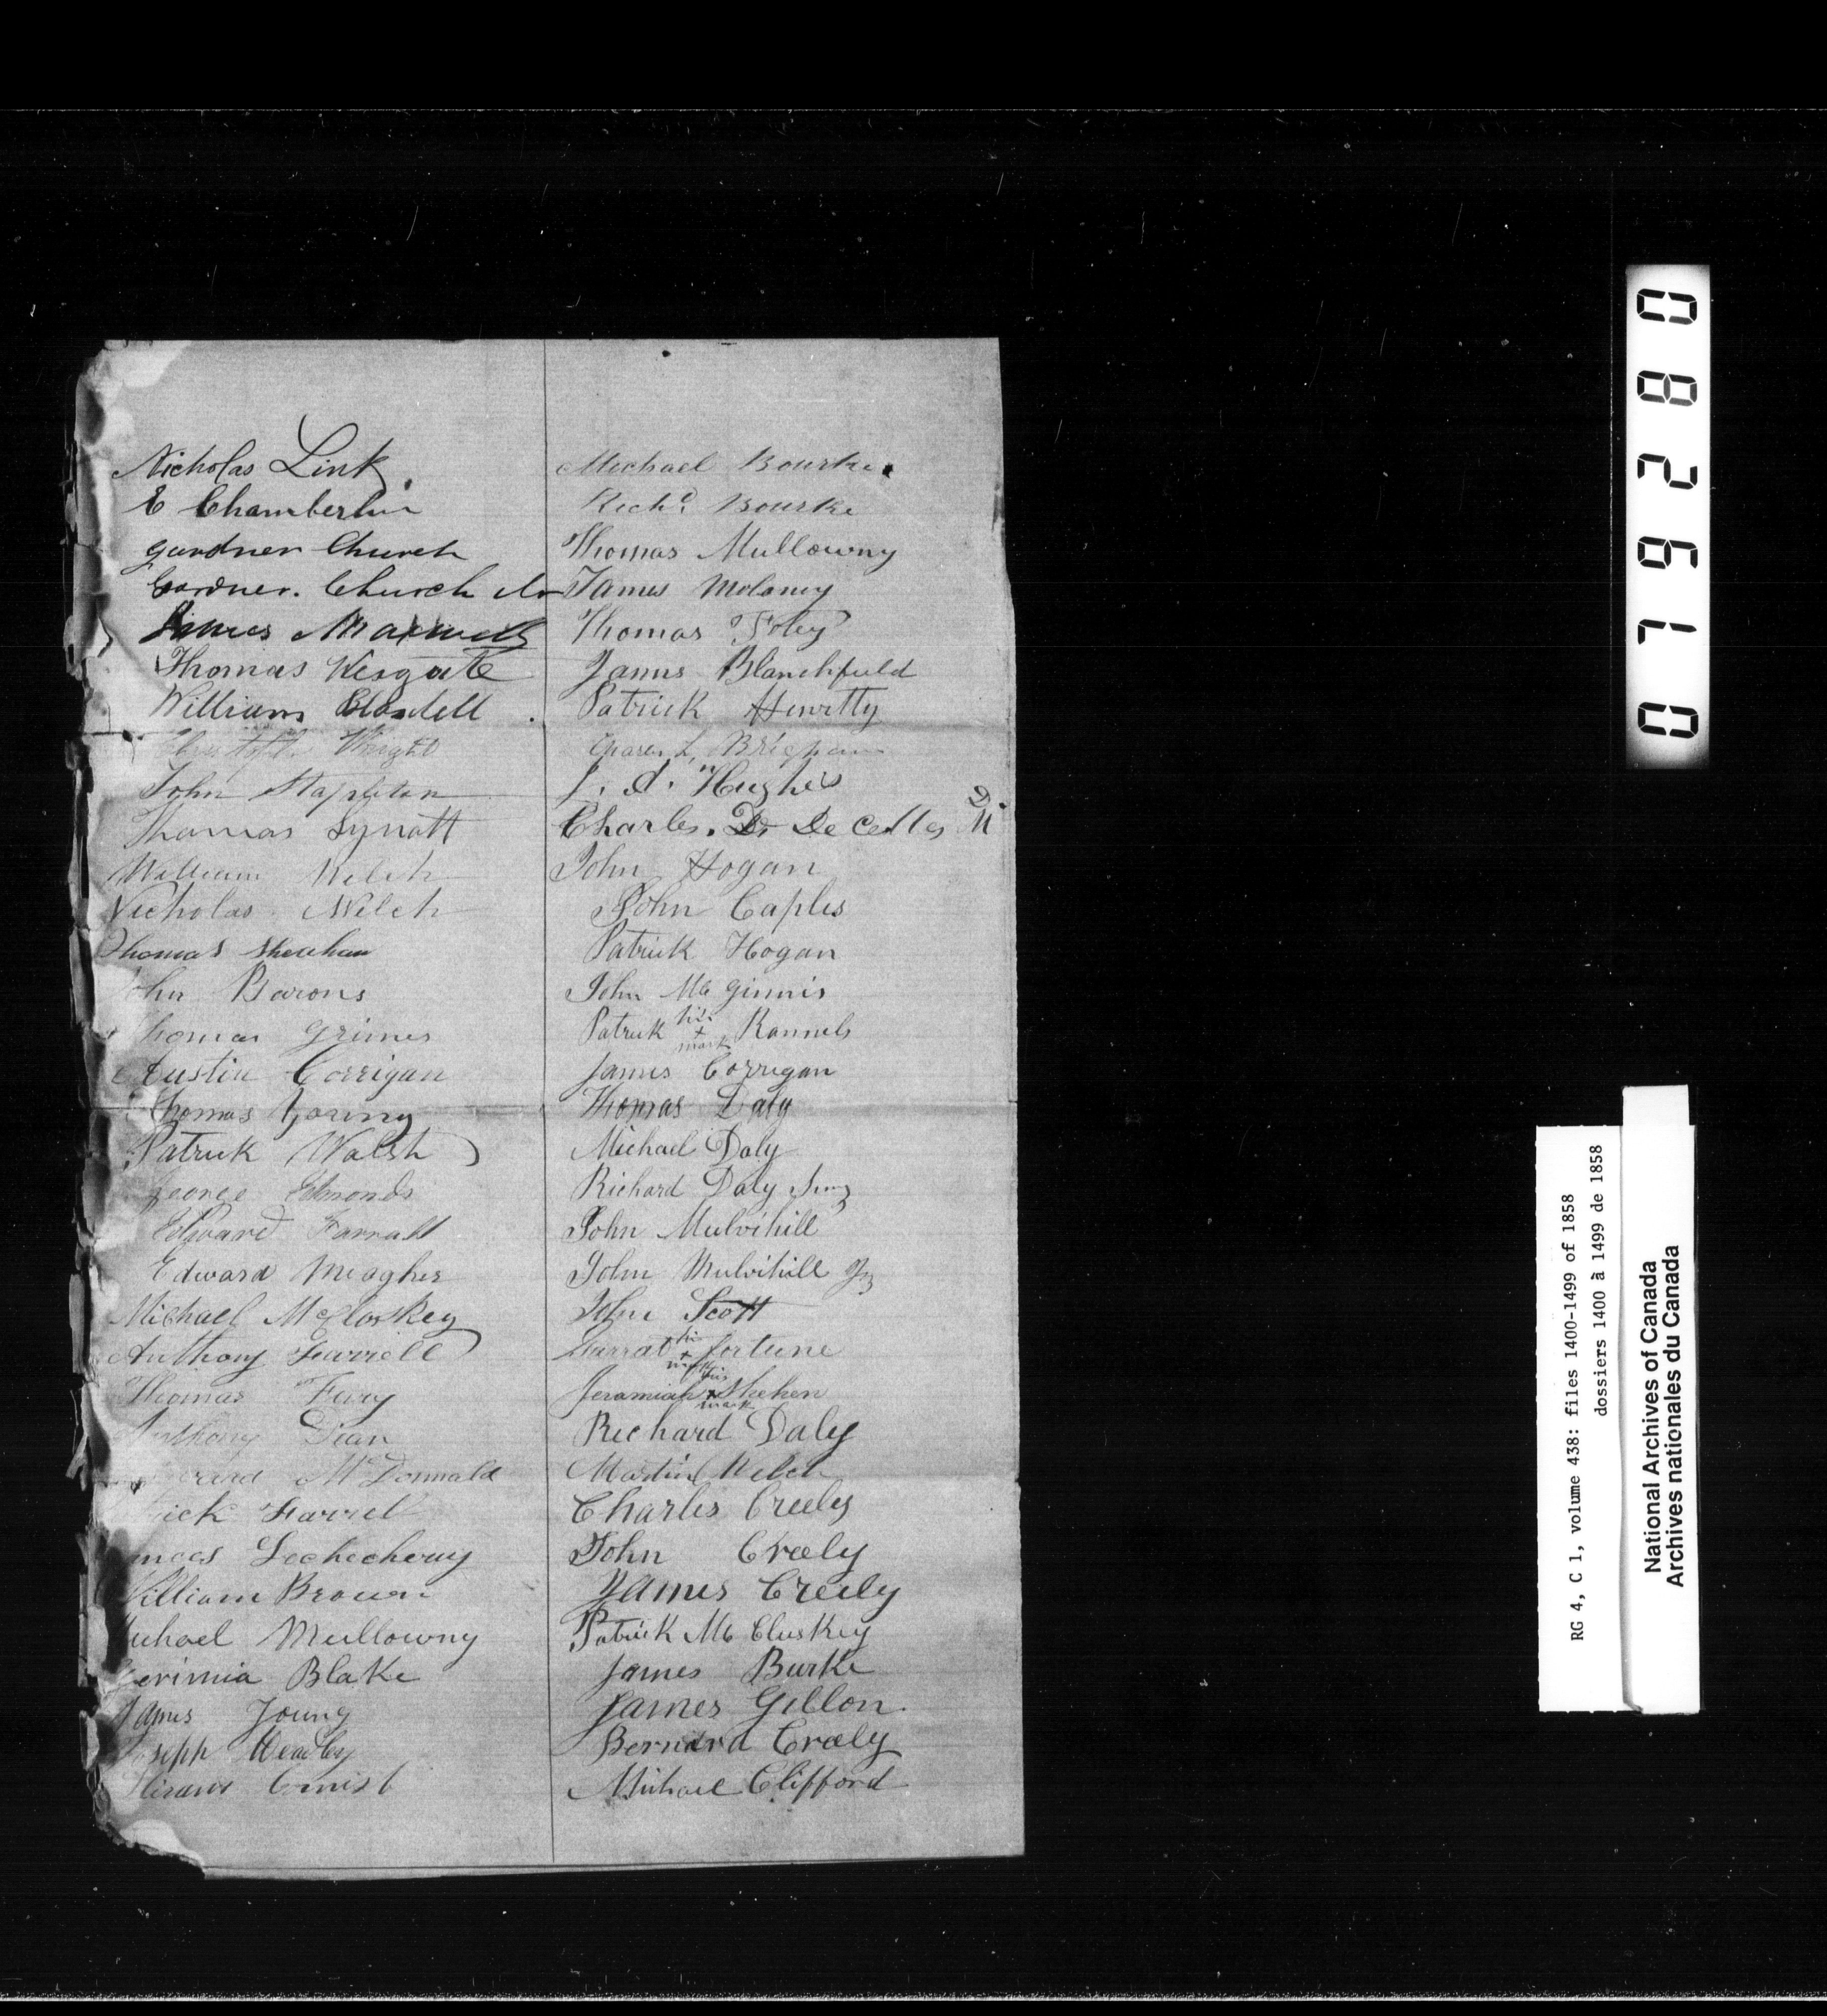 Nicholas Link
E Chamberlin
Gardner Church
Gardner. Church
James Maxwell
Thomas Kesgate
William Blasdell
Wright
John Stapleton
Thomas Synott
William Welch
Nicholas Welch
Thomas Sheahan
John Barons
Thomas Grimes
Austin Corrigan
Thomas Young
Patrick Walsh
George Edmonds
Edward Farrall
Edward Meagher
Michael McCloskey
Anthony Farrell
Thomas Fury
Anthony Dian
McDonnald
rick Farrell
William Brown
Michael Mullowny
Jerimia Blake
James Young
Joseph Headley
Hiram
Michael Bourke
Richd Bourke
Thomas Mullowny
James Molony
Thomas Foley
James Blanchfield
Patrick Hewitty
Charles L Brigham
J. d. Hughes
Charles. D. De Celles M D.
John Hogan
John Caples
Patrick Hogan
John Mc Ginnis
Patrick his + mark Rannels
James Corrigan
Thomas Daly
Michael Daly
Richard Daly
John Mulvihill
John Mulvihill Jr
John Scott
Garrat his + mark fortune
Jeramiah his + mark Shehen
Richard Daly
Martin Welch
Charles Creely
John Creely
James Creely
Patrick Mc Cluskey
James Burke
James Gillon
Bernard Creely
Michael Clifford
079280
RG 4, C 1, volume 438: files 1400-1499 of 1858
dossiers 1400 à 1499 de 1858
National Archives of Canada
Archives nationales du Canada